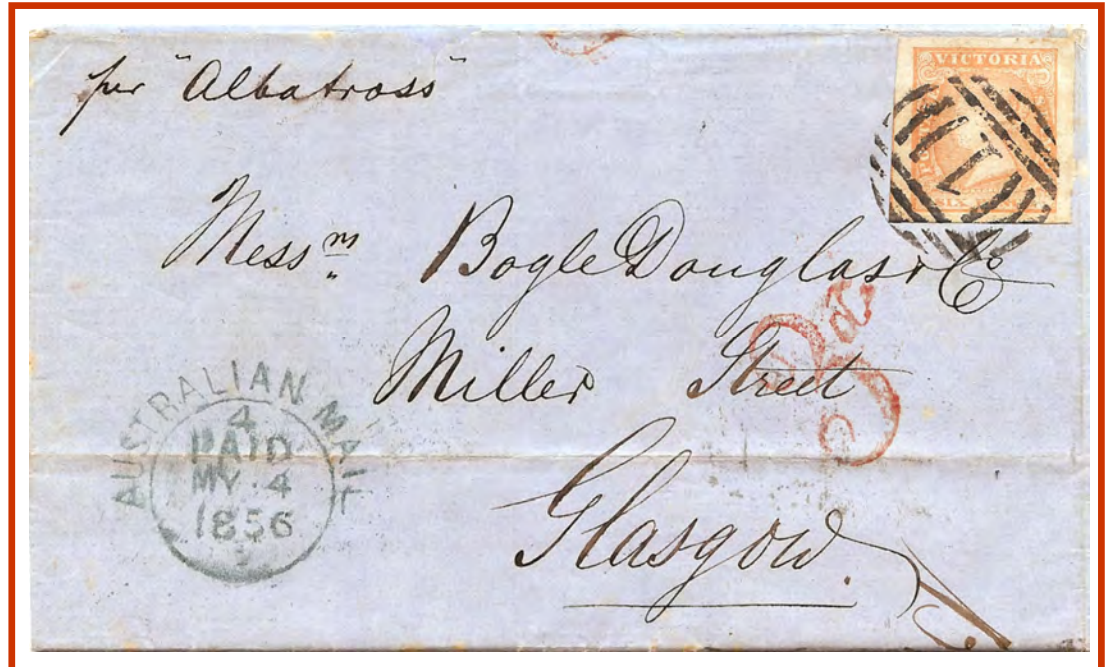 per "Albatross"
VICTORIA
SIX
Messrs Bogle Douglas & Co
Miller Street
3d
AUSTRALIAN MAIL
4
PAID
MY. 4
1856
Glasgow.